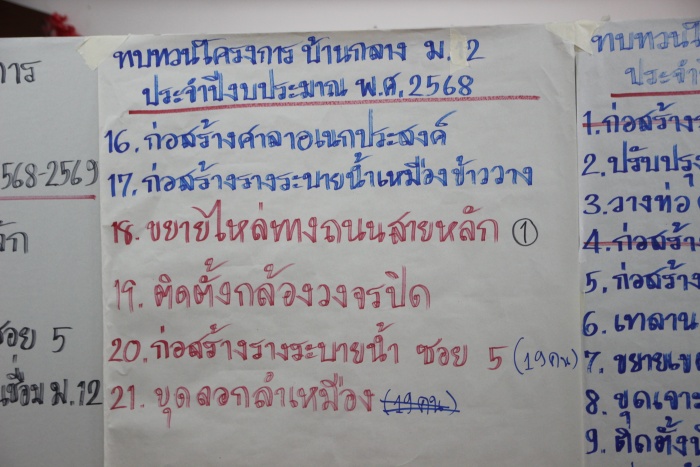 ทบทวนโครงการ บ้านกลาง ม. 2
ประจำปีงบประมาณ พ.ศ. 2568
16. ก่อสร้างศาลาอเนกประสงค์
17. ก่อสร้างรางระบายน้ำเหมืองข้าววาง
18. ขยายไหล่ทางถนนสายหลัก ①
19. ติดตั้งกล้องวงจรปิด
20. ก่อสร้างรางระบายน้ำ ซอย 5 (19คน)
21. ขุดลอกลำเหมือง (19คน)
การ
568-2569
ซอย 5
ม.12
ทบทวนโ
ประจำ
1. ก่อสร้าง
2. ปรับปรุง
3. วางท่อ
4. ก่อสร้าง
5. ก่อสร้าง
6. เทลาน
7. ขยายเข
8. ขุดเจาะ
9. ติดตั้ง